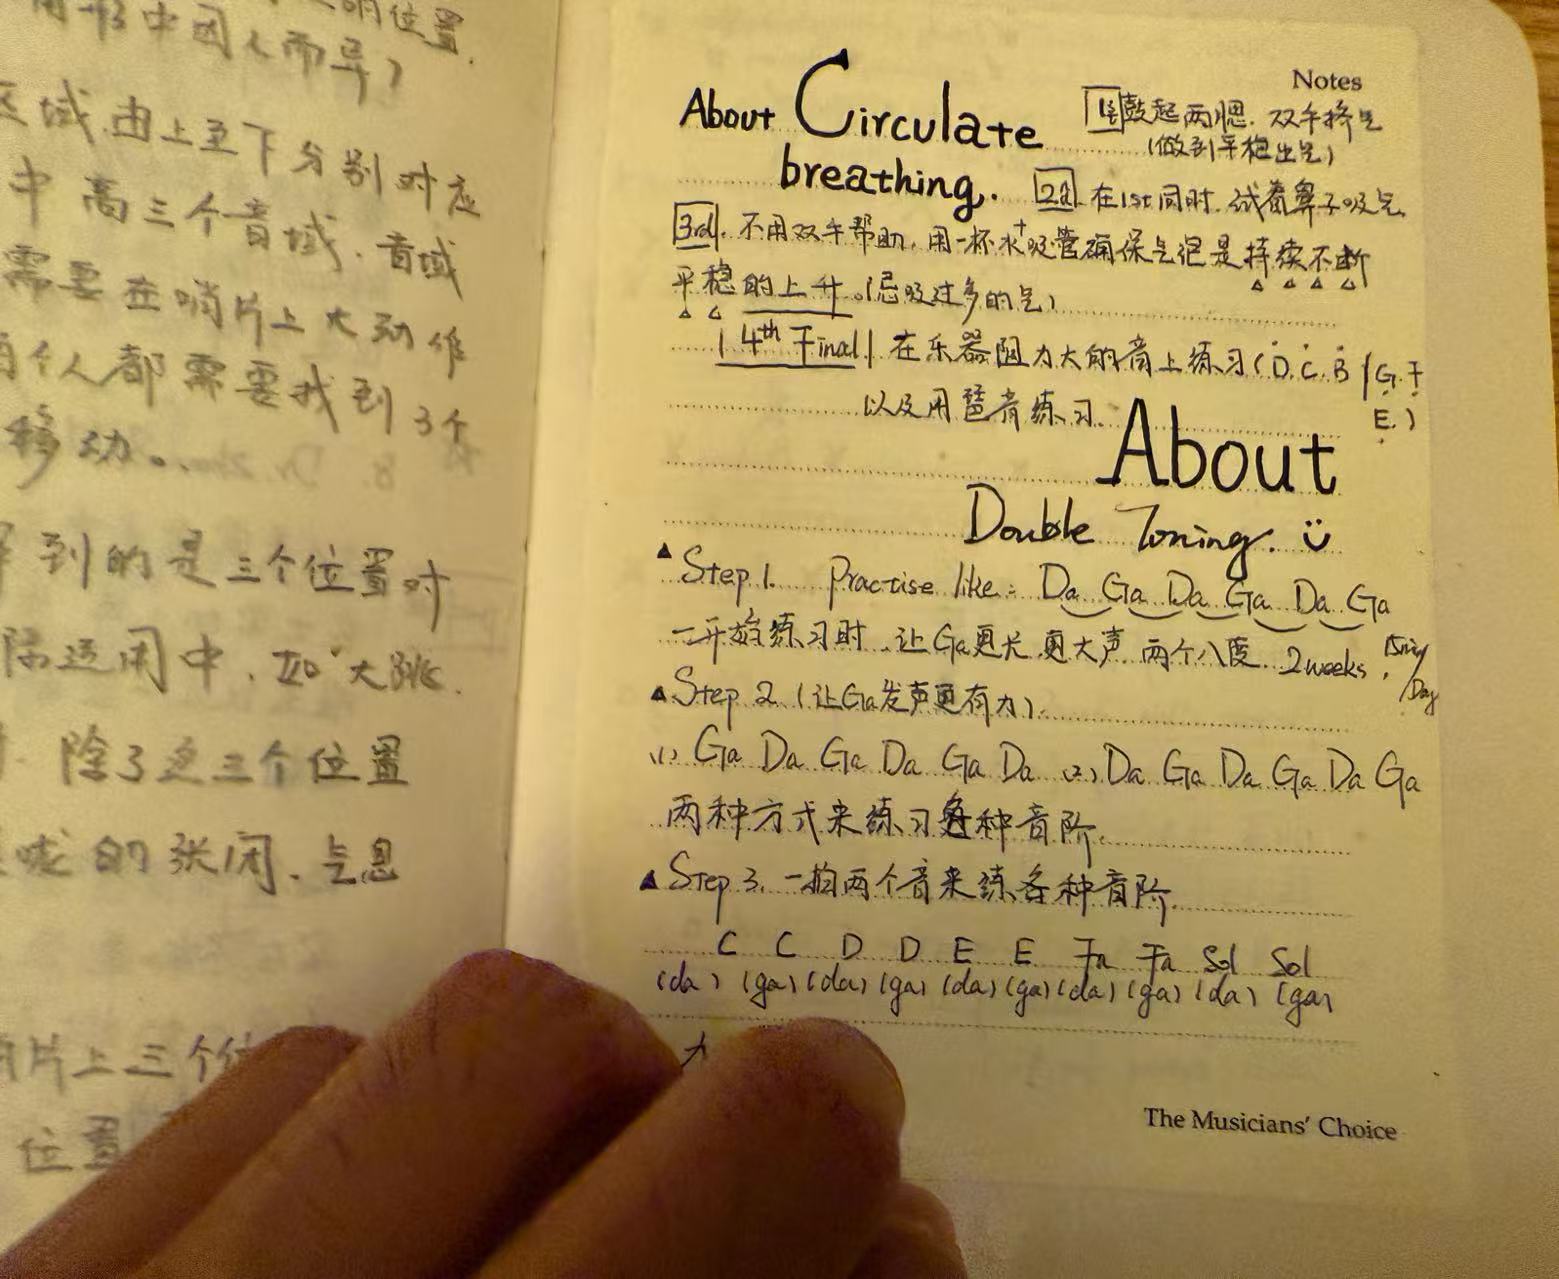 明位置.
中因人而异)
区域.由上至下分别对应
中高三个音域.音域
需要在哨片上大动作
个人都需要找到3个
移动。
到的是三个位置时
际运用中.如"大跳.
除了这三个位置
的张闭.气息
片上三个位
位置
Notes
About Circulate
breathing.
1st 鼓起两腮.双手挤气
(做到平稳出气)
2d 在1st同时.试着鼻子吸气
3rd. 不用双手帮助.用一杯水+吸管确保气泡是持续不断
平稳的上升。(忌吸过多的气)
4th Final 在乐器阻力大的音上练习(D.C.B/G.F
E.)
以及用琶音练习.
About
Double Toning.
Step 1. Practise like: Da Ga Da Ga Da Ga
一开始练习时.让Ga更长 更大声 两个八度. 2weeks.
/Day
Step 2 (让Ga发声更有力).
(1) Ga Da Ga Da Ga Da (2) Da Ga Da Ga Da Ga
两种方式来练习各种音阶.
Step 3. 一拍两个音来练各种音阶.
C C D D E E Fa Fa Sol Sol
(da) (ga) (da) (ga) (da) (ga) (da) (ga) (da) (ga)
The Musicians' Choice